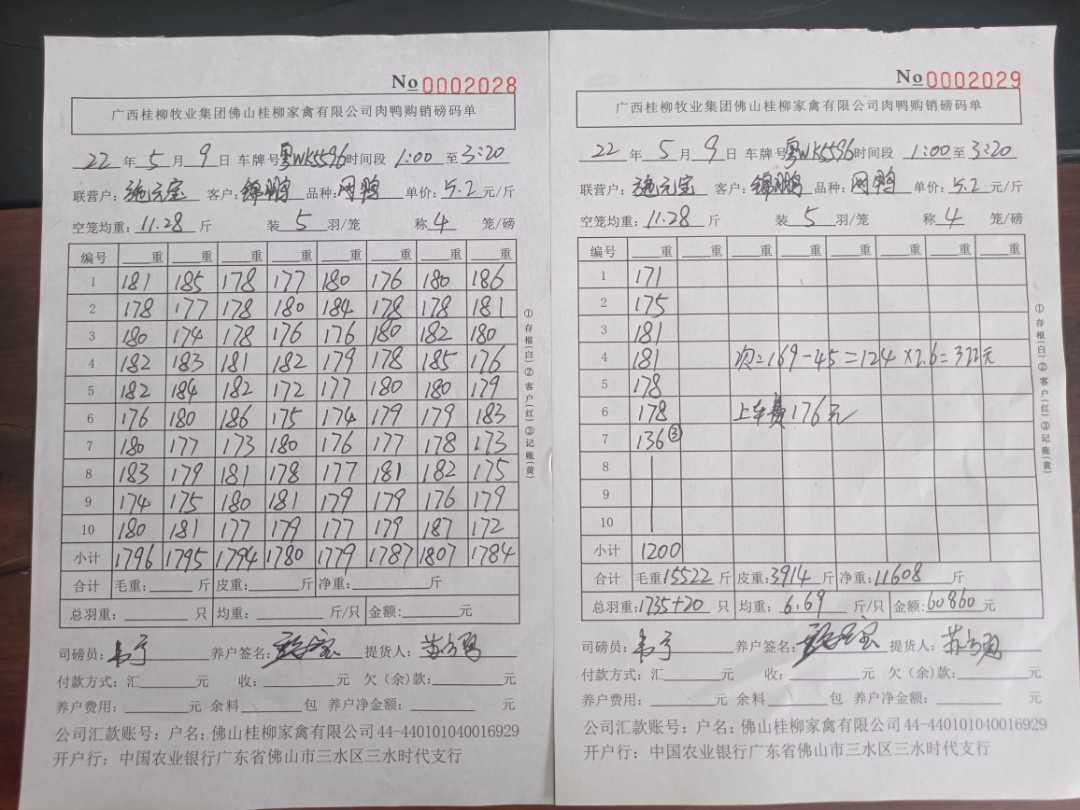 No 0002028
广西桂柳牧业集团佛山桂柳家禽有限公司肉鸭购销磅码单
22 年 5 月 9 日 车牌号 粤WK5596 时间段 1:00 至 3:20
联营户: 施元宝 客户: 锦鹏 品种: 网鸭 单价: 5.2 元/斤
空笼均重: 11.28 斤 装 5 羽/笼 称 4 笼/磅
编号 重 重 重 重 重 重 重 重
1 181 185 178 177 180 176 180 186
2 178 177 178 180 184 178 178 181
3 180 174 178 176 176 180 182 180
4 182 183 181 182 179 178 185 176
5 182 184 182 172 177 180 180 179
6 176 180 186 175 174 179 179 183
7 180 177 173 180 176 177 178 173
8 183 179 181 178 177 181 182 175
9 174 175 180 181 179 179 176 179
10 180 181 177 179 177 179 187 172
小计 1796 1795 1794 1780 1779 1787 1807 1784
合计 毛重: 斤 皮重: 斤 净重: 斤
总羽重: 只 均重: 斤/只 金额: 元
司磅员: 养户签名: 提货人:
付款方式: 汇 元 收: 元 欠(余)款: 元
养户费用: 元 余料 包 养户净金额: 元
公司汇款账号: 户名: 佛山桂柳家禽有限公司44-440101040016929
开户行: 中国农业银行广东省佛山市三水区三水时代支行
①存根(白)②客户(红)③记账(黄)
No 0002029
广西桂柳牧业集团佛山桂柳家禽有限公司肉鸭购销磅码单
22 年 5 月 9 日 车牌号 粤WK5596 时间段 1:00 至 3:20
联营户: 施元宝 客户: 锦鹏 品种: 网鸭 单价: 5.2 元/斤
空笼均重: 11.28 斤 装 5 羽/笼 称 4 笼/磅
编号 重 重 重 重 重 重 重 重
1 171
2 175
3 181
4 181 次=169-45=124×2.6=322元
5 178
6 178 上车费176元
7 136③
8
9
10
小计 1200
合计 毛重: 15522 斤 皮重: 3914 斤 净重: 11608 斤
总羽重: 1735+20 只 均重: 6.69 斤/只 金额: 60860 元
司磅员: 养户签名: 提货人:
付款方式: 汇 元 收: 元 欠(余)款: 元
养户费用: 元 余料 包 养户净金额: 元
公司汇款账号: 户名: 佛山桂柳家禽有限公司44-440101040016929
开户行: 中国农业银行广东省佛山市三水区三水时代支行
①存根(白)②客户(红)③记账(黄)